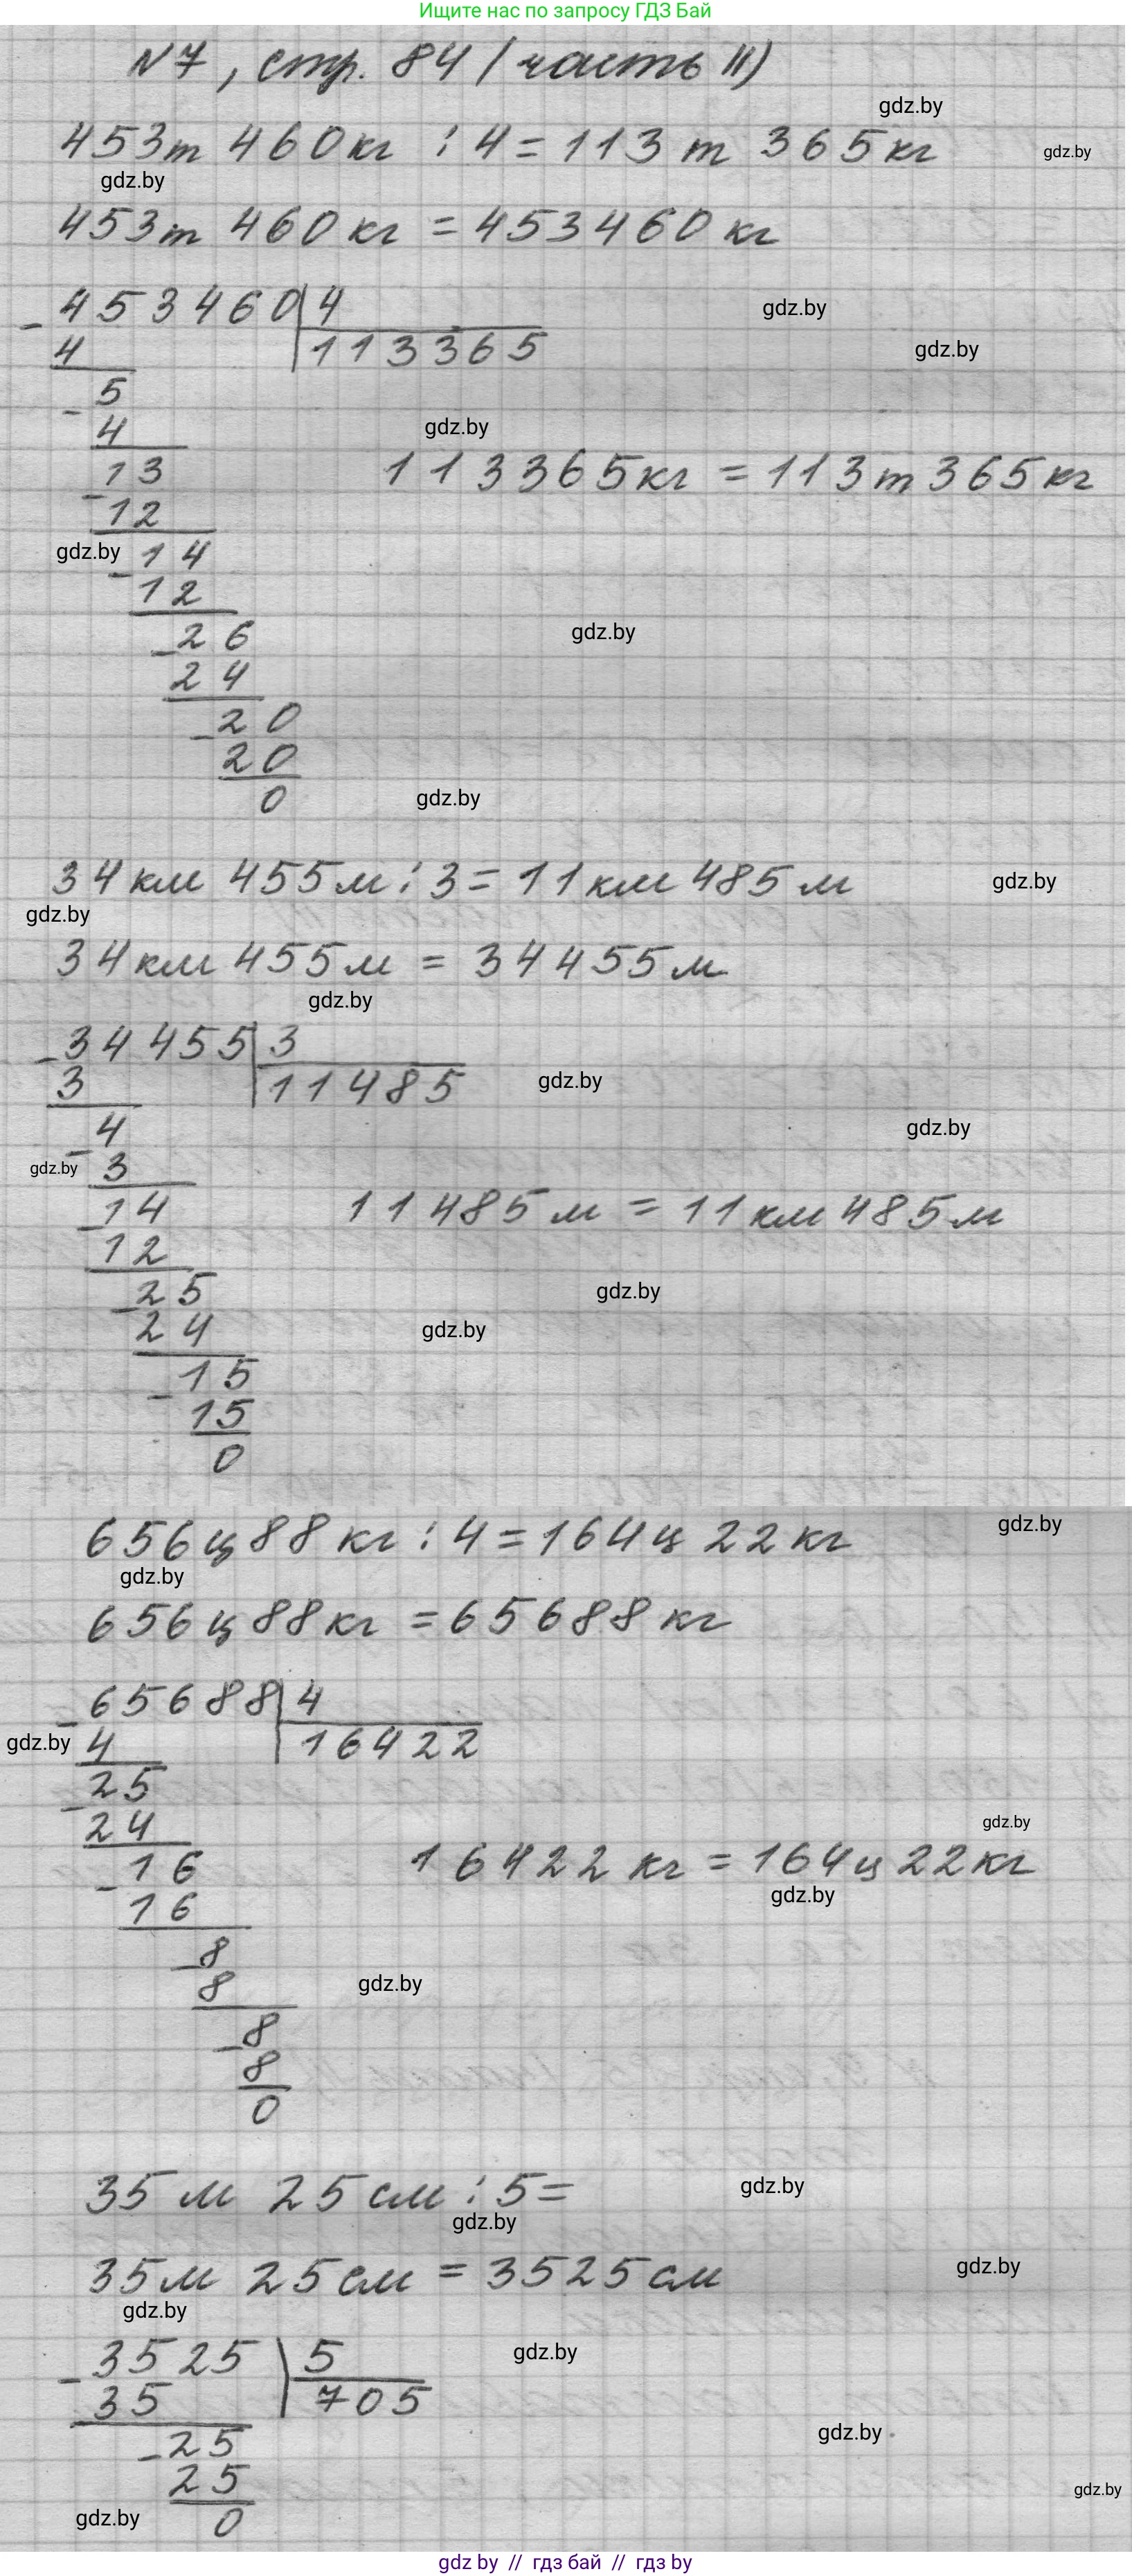 Ищите нас по запросу ГДЗ Бай
N7, стр. 84 (часть II)
gdz.by
453т 460кг : 4 = 113 т 365кг
gdz.by
gdz.by
453т 460 кг = 453460 кг
453460 4
gdz.by
4 113365
gdz.by
5
4
gdz.by
13
113365кг = 113т 365кг
12
gdz.by 14
12
26
gdz.by
24
20
20
0
gdz.by
34км 455м : 3 = 11км 485м
gdz.by
gdz.by
34км 455м = 34455м
gdz.by
34455 3
3 11485
gdz.by
4
gdz.by
gdz.by 3
14
11485м = 11км 485м
12
25
gdz.by
24
gdz.by
15
15
0
656ц 88 кг : 4 = 164ц 22кг
gdz.by
gdz.by
656ц 88кг = 65688 кг
65688 4
gdz.by 4 16422
25
24
gdz.by
16
16422 кг = 164ц 22кг
gdz.by
16
8
8
gdz.by
8
8
0
35 м 25см : 5 =
gdz.by
gdz.by
35м 25см = 3525см
gdz.by
gdz.by
3525 5
gdz.by
35 705
25
gdz.by
25
gdz.by
gdz.by 0
gdz by // гдз бай // гдз by